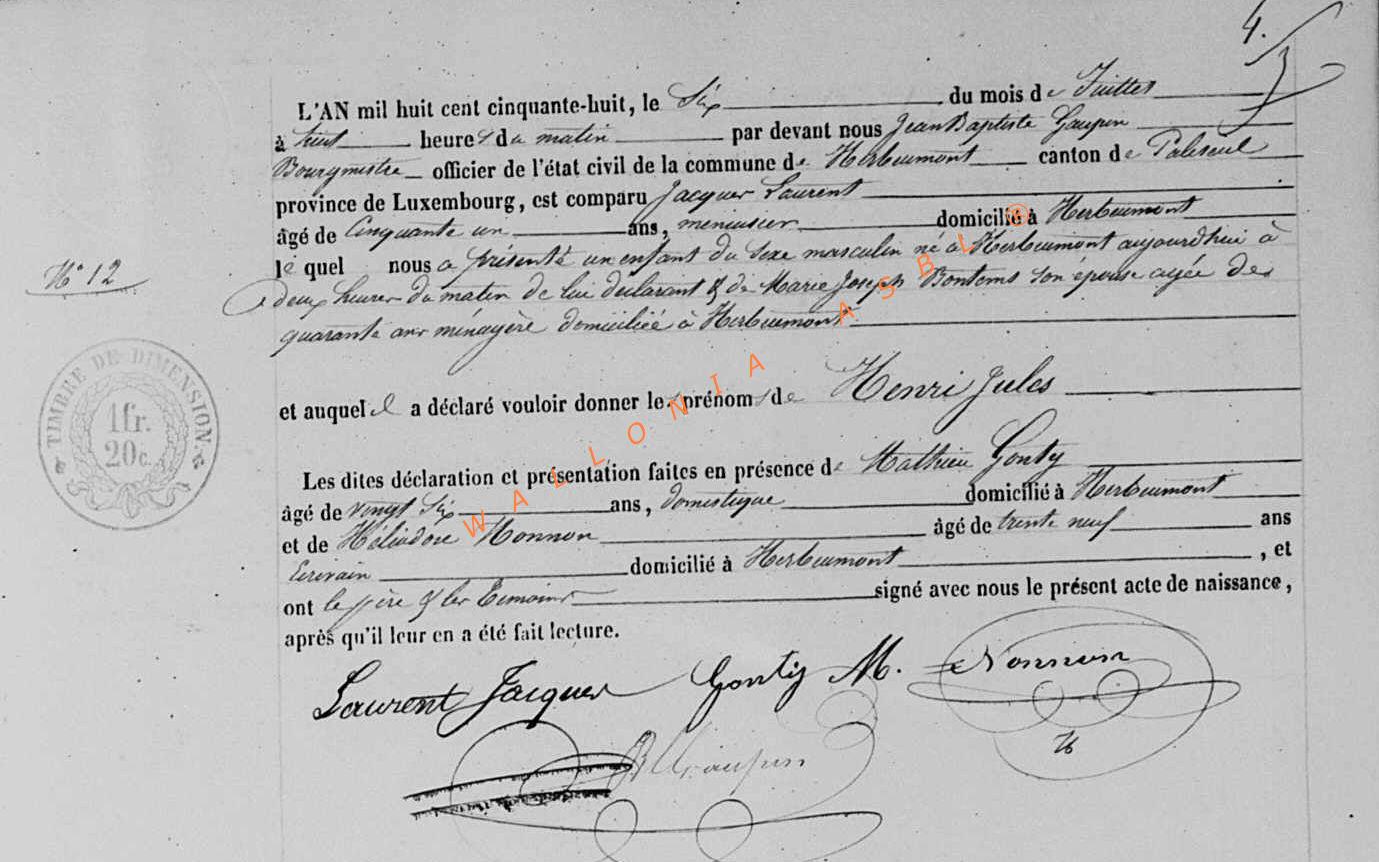 4.
L'AN mil huit cent cinquante-huit, le Six du mois de Juillet
à huit heures du matin par devant nous Jean Baptiste Gaupin
Bourgmestre officier de l'état civil de la commune de Herbeumont canton de Paliseul
province de Luxembourg, est comparu Jacques Laurent
âgé de Cinquante un ans, menuisier domicilié à Herbeumont
N° 12
lequel nous a présenté un enfant du Sexe masculin né à Herbeumont aujourdhui à
deux heures du matin de lui déclarant & de Marie Joseph Bontems Son épouse agée de
quarante ans ménagère domiciliée à Herbeumont
et auquel il a déclaré vouloir donner les prénoms de Henri Jules
TIMBRE DE DIMENSION
1fr.
20c.
Les dites déclaration et présentation faites en présence de Mathieu Gonty
âgé de vingt Six ans, domestique domicilié à Herbeumont
et de Héliodore Nonnon âgé de trente neuf ans
Ecrivain domicilié à Herbeumont, et
ont le père & les témoins signé avec nous le présent acte de naissance,
après qu'il leur en a été fait lecture.
Laurent Jacques Gonty M. Nonnon
Gaupin
WALLONIA ASBL ®